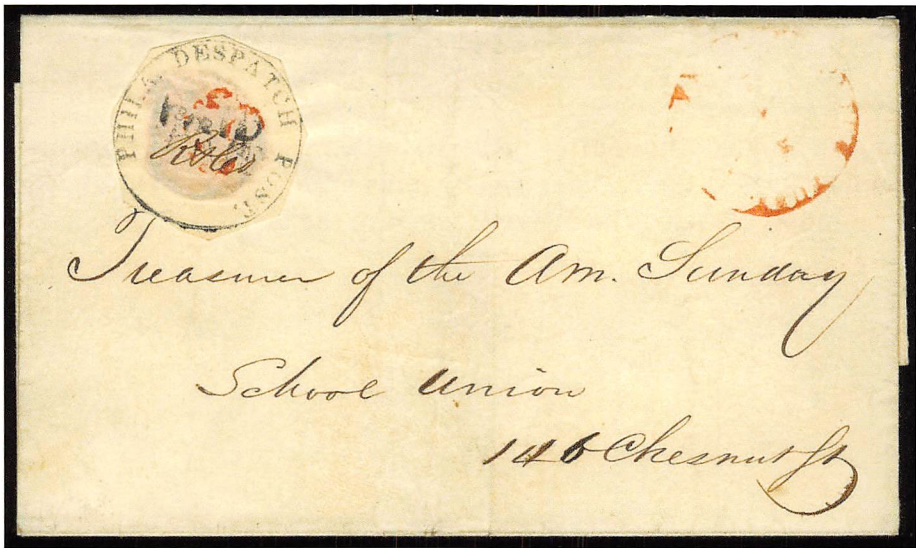 PHILA DESPATCH POST.
Treasurer of the Am. Sunday
School Union
146 Chesnut St